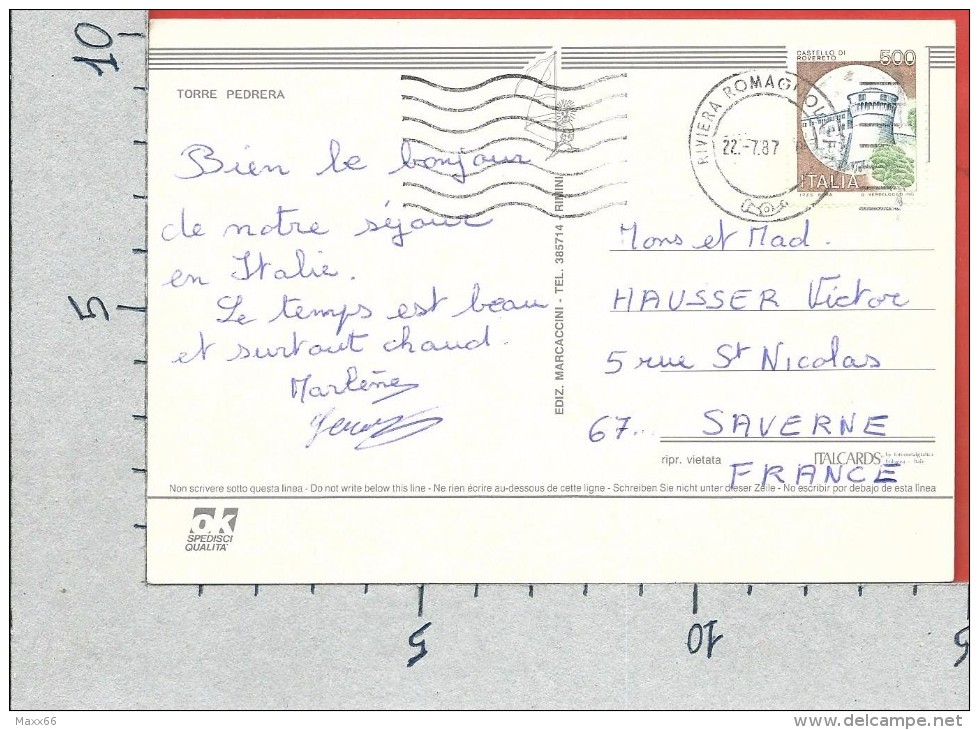 TORRE PEDRERA
Bien le bonjour
de notre séjour
en Italie.
Le temps est beau
et surtout chaud.
Marlène
EDIZ. MARCACCINI - TEL. 385714 - RIMINI
RIVIERA ROMAGNOLA
22.-7.87
CASTELLO DI
ROVERETO
500
ITALIA
Mons et Mad.
HAUSSER Victor
5 rue St Nicolas
67... SAVERNE
FRANCE
ripr. vietata
ITALCARDS
Non scrivere sotto questa linea - Do not write below this line - Ne rien écrire au-dessous de cette ligne - Schreiben Sie nicht unter dieser Zeile - No escribir por debajo de esta línea
ok
SPEDISCI
QUALITA'
10
5
5
10
5
Maxx66
delcampe.net